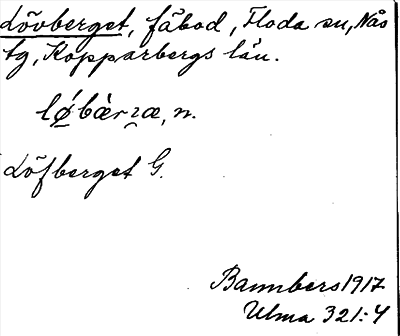 Lövberget, fäbod, Floda sn, Nås
tg, Kopparbergs län.
lǿbàrɀæ, n.
Löfberget G.
Bannbers 1917
Ulma 321:4